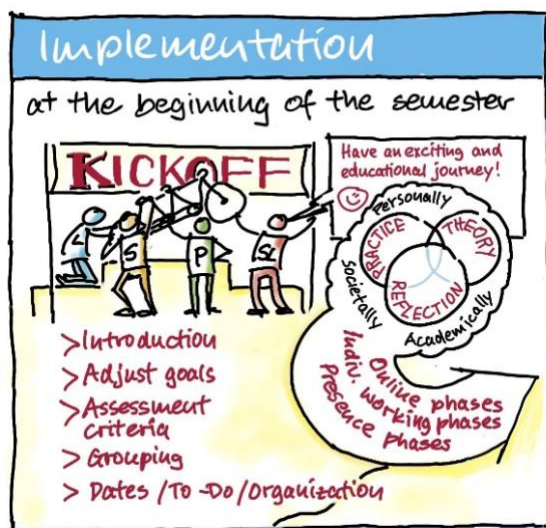 Implementation
at the beginning of the semester
KICKOFF
Have an exciting and
educational journey!
L
S
P
SL
Personally
PRACTICE
THEORY
REFLECTION
Societally
Academically
Online phases
Indiv. working phases
Presence phases
>Introduction
>Adjust goals
>Assessment
criteria
>Grouping
> Dates /To -Do /Organization